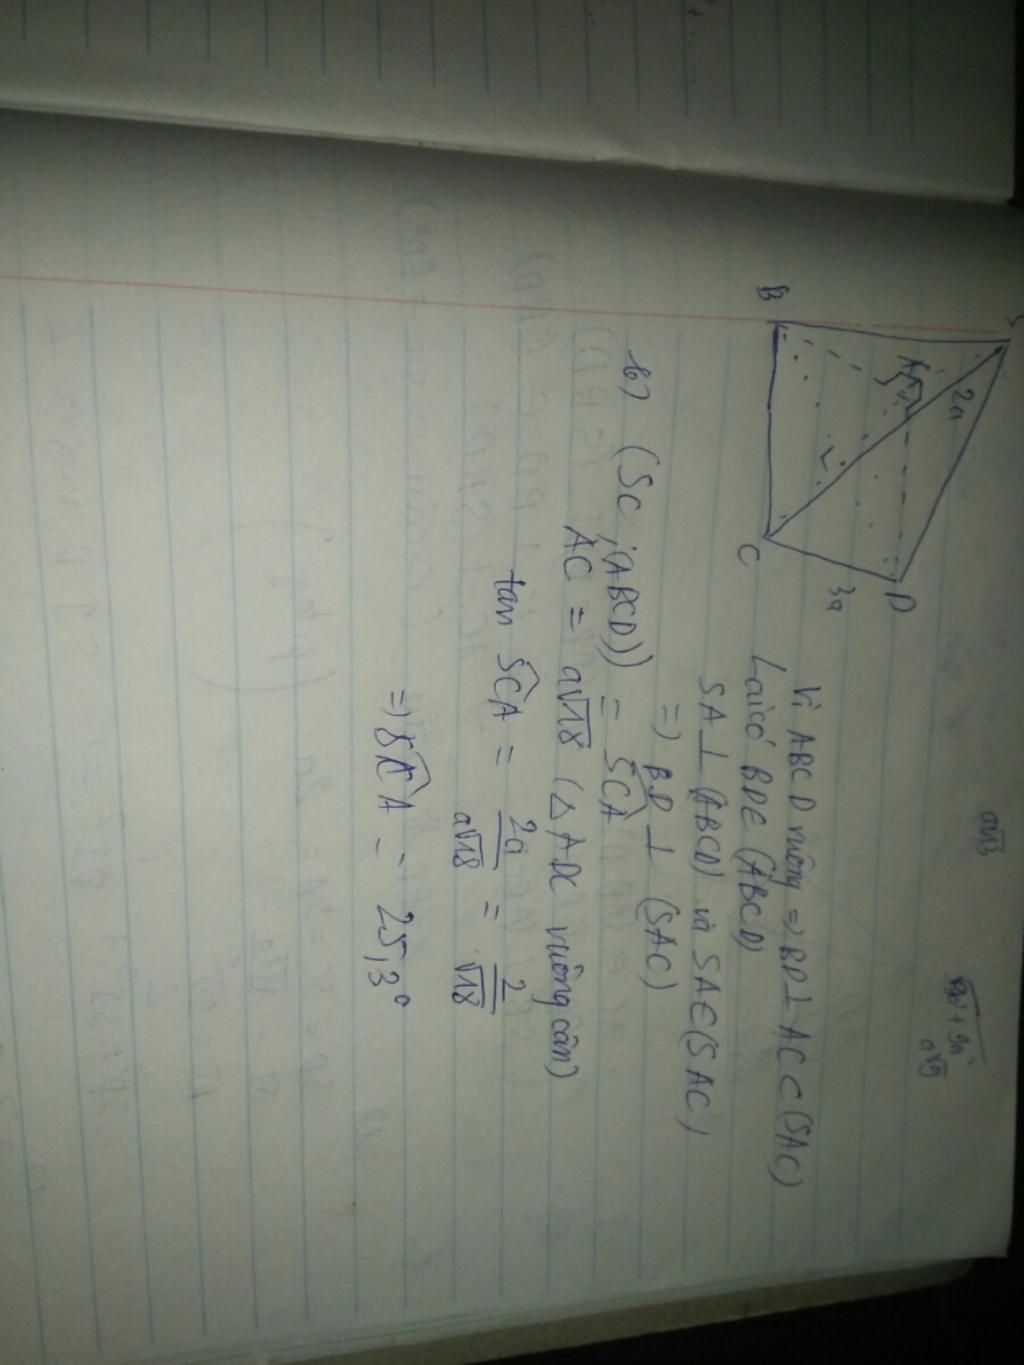 S
2a
A
B
C
D
3a
a√13
a√9
Vì ABCD vuông => BD ⊥ AC ⊂ (SAC)
Lại có BD ∈ (ABCD)
SA ⊥ (ABCD) và SA ∈ (SAC)
=> BD ⊥ (SAC)
b) (SC, (ABCD)) = SĈA
AC = a√18 (△ ADC vuông cân)
tan SĈA = 2a/a√18 = 2/√18
=> SĈA = 25,3°